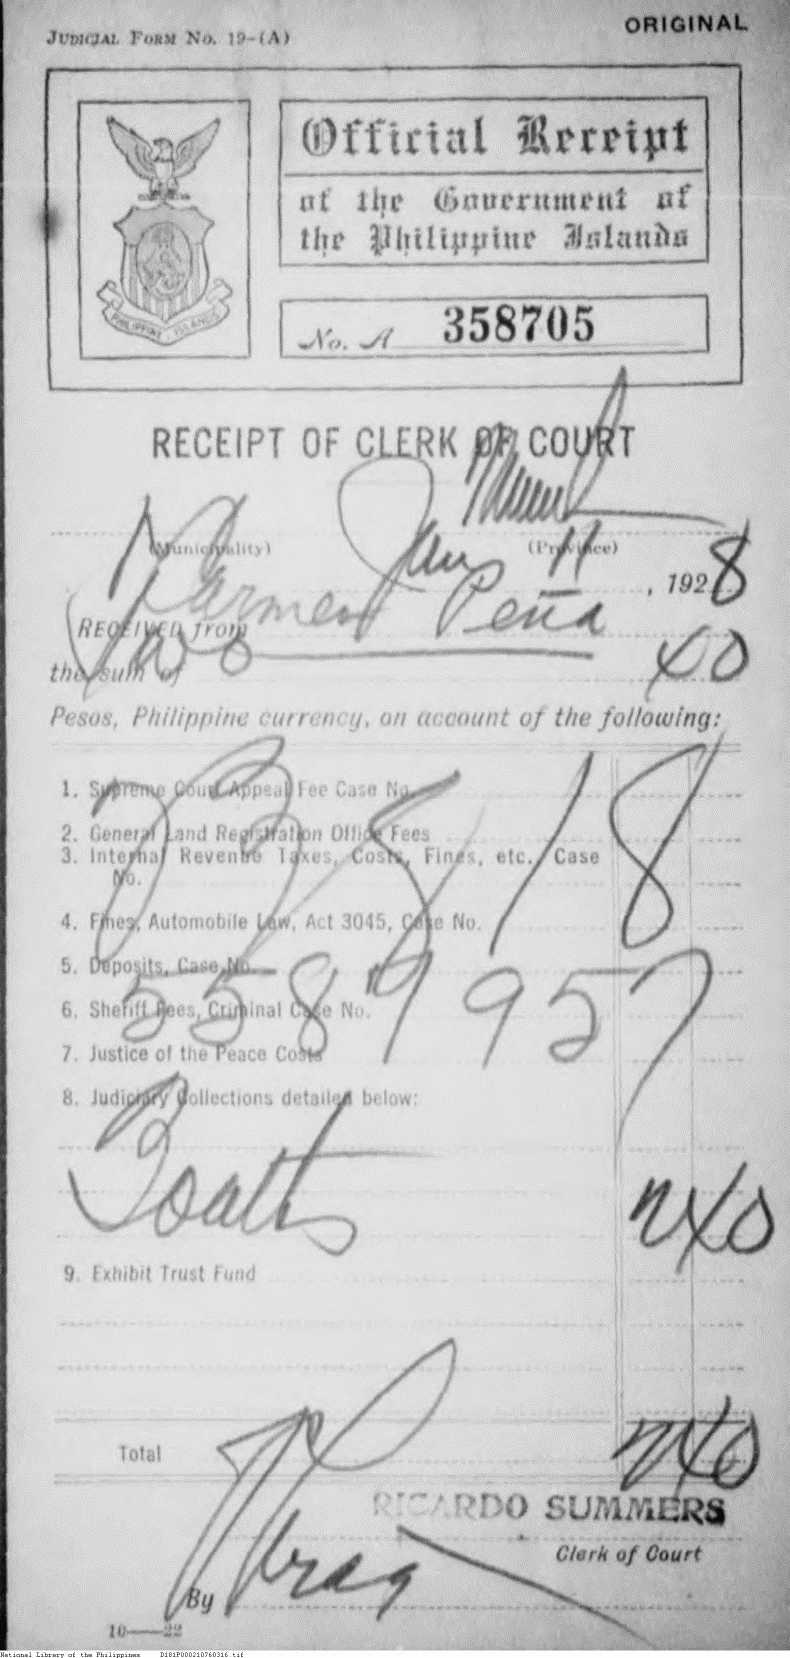 JUDICIAL FORM No. 19-(A)
ORIGINAL
PHILIPPINE ISLANDS
Official Receipt
of the Government of
the Philippine Islands
No. A 358705
RECEIPT OF CLERK OF COURT
(Municipality) (Province)
Jany 11, 1928
RECEIVED from Carmen Peña
the sum of Two 40
Pesos, Philippine currency, on account of the following:
1. Supreme Court Appeal Fee Case No.
2. General Land Registration Office Fees
3. Internal Revenue Taxes, Costs, Fines, etc., Case
No.
4. Fines, Automobile Law, Act 3045, Case No.
5. Deposits, Case No.
6. Sheriff Fees, Criminal Case No.
7. Justice of the Peace Costs
8. Judiciary Collections detailed below:
2 40
9. Exhibit Trust Fund
Total 2 40
RICARDO SUMMERS
Clerk of Court
By
10——22
National Library of the Philippines D181P000210760316.tif